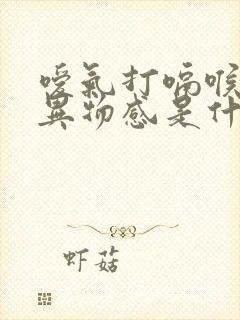 噯氣打嗝喉
異物感是什
虾菇